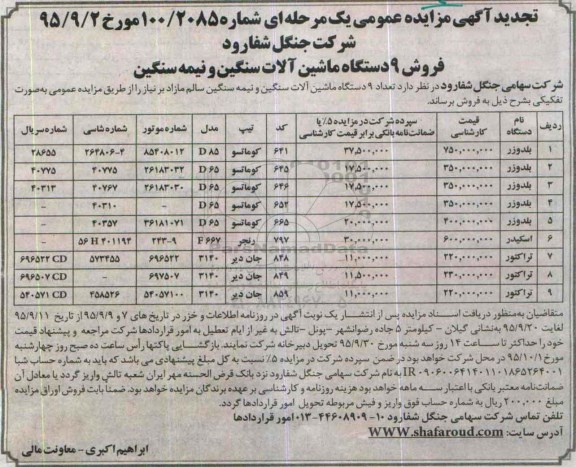 تجدید آگهی مزایده عمومی یک مرحله ای شماره ۱۰۰/۲۰۸۵ مورخ ۹۵/۹/۲
شرکت جنگل شفارود
فروش ۹ دستگاه ماشین آلات سنگین و نیمه سنگین
شرکت سهامی جنگل شفارود در نظر دارد تعداد ۹ دستگاه ماشین آلات سنگین و نیمه سنگین سالم مازاد بر نیاز را از طریق مزایده عمومی به صورت
تفکیکی بشرح ذیل به فروش برساند.
ردیف نام دستگاه قیمت کارشناسی سپرده شرکت در مزایده ۵٪ یا ضمانت نامه بانکی برابر قیمت کارشناسی کد تیپ مدل شماره موتور شماره شاسی شماره سریال
۱ بلدوزر ۷۵۰,۰۰۰,۰۰۰ ۳۷,۵۰۰,۰۰۰ ۶۴۱ کوماتسو D ۸۵ ۸۵۴۰۸۰۱۲ ۲۶۴۸۰۶-۴ ۲۸۶۵۵
۲ بلدوزر ۳۵۰,۰۰۰,۰۰۰ ۱۷,۵۰۰,۰۰۰ ۶۴۵ کوماتسو D ۶۵ ۲۶۱۸۳۰۳۲ ۴۰۷۷۵ ۴۰۷۷۵
۳ بلدوزر ۳۵۰,۰۰۰,۰۰۰ ۱۷,۵۰۰,۰۰۰ ۶۴۶ کوماتسو D ۶۵ ۲۶۱۸۳۰۳۰ ۴۰۷۶۷ ۴۰۳۱۳
۴ بلدوزر ۳۵۰,۰۰۰,۰۰۰ ۱۷,۵۰۰,۰۰۰ ۶۵۲ کوماتسو D ۶۵ - ۴۰۳۱۰ -
۵ بلدوزر ۴۰۰,۰۰۰,۰۰۰ ۲۰,۰۰۰,۰۰۰ ۶۶۵ کوماتسو D ۶۵ ۳۶۱۸۱۰۷۱ ۴۰۳۵۷ -
۶ اسکیدر ۶۰۰,۰۰۰,۰۰۰ ۳۰,۰۰۰,۰۰۰ ۷۹۷ رنجر F ۶۶۷ ۲۲۳-۹ ۵۶ H ۴۰۱۱۹۴ -
۷ تراکتور ۲۲۰,۰۰۰,۰۰۰ ۱۱,۰۰۰,۰۰۰ ۸۴۸ جان دیر ۳۱۴۰ ۶۹۶۵۲۲ ۵۷۳۴۵۵ ۶۹۶۵۲۲ CD
۸ تراکتور ۲۳۰,۰۰۰,۰۰۰ ۱۱,۵۰۰,۰۰۰ ۸۴۹ جان دیر ۳۱۴۰ ۶۹۷۵۰۷ - ۶۹۶۵۰۷ CD
۹ تراکتور ۲۲۰,۰۰۰,۰۰۰ ۱۱,۰۰۰,۰۰۰ ۸۵۹ جان دیر ۳۱۴۰ ۵۴۰۵۷۱۰۰ ۳۵۸۵۲۶ ۵۴۰۵۷۱ CD
متقاضیان به منظور دریافت اسناد مزایده پس از انتشار یک نوبت آگهی در روزنامه اطلاعات و خزر در تاریخ های ۷ و ۹۵/۹/۹ از تاریخ ۹۵/۹/۱۱
لغایت ۹۵/۹/۲۰ به نشانی گیلان - کیلومتر ۵ جاده رضوانشهر - پونل - تالش به غیر از ایام تعطیل به امور قراردادها شرکت مراجعه و پیشنهاد قیمت
خود را حداکثر تا ساعت ۱۴ روز سه شنبه مورخ ۹۵/۹/۳۰ تحویل دبیرخانه شرکت نمایند. بازگشایی پاکتها رأس ساعت ده صبح روز چهارشنبه
مورخ ۹۵/۱۰/۱ در محل شرکت خواهد بود در ضمن سپرده شرکت در مزایده ۵٪ نسبت به کل مبلغ پیشنهادی می باشد که باید به شماره حساب شبا
IR۰۹۰۶۰۰۶۴۱۴۰۱۱۰۱۸۶۵۲۶۴۰۰۱ به نام شرکت سهامی جنگل شفارود نزد بانک قرض الحسنه مهر ایران شعبه تالش واریز گردد یا معادل آن
ضمانت نامه معتبر بانکی با اعتبار سه ماهه خواهد بود هزینه روزنامه و کارشناسی بر عهده برندگان مزایده خواهد بود. ضمناً بابت فروش اوراق مزایده
مبلغ ۲۰۰,۰۰۰ ریال به شماره حساب فوق واریز و فیش مربوطه تحویل امور قراردادها گردد.
تلفن تماس شرکت سهامی جنگل شفارود ۱۰-۴۴۶۰۸۹۰۹-۰۱۳ امور قراردادها
آدرس سایت: WWW.shafaroud.com
ابراهیم اکبری - معاونت مالی